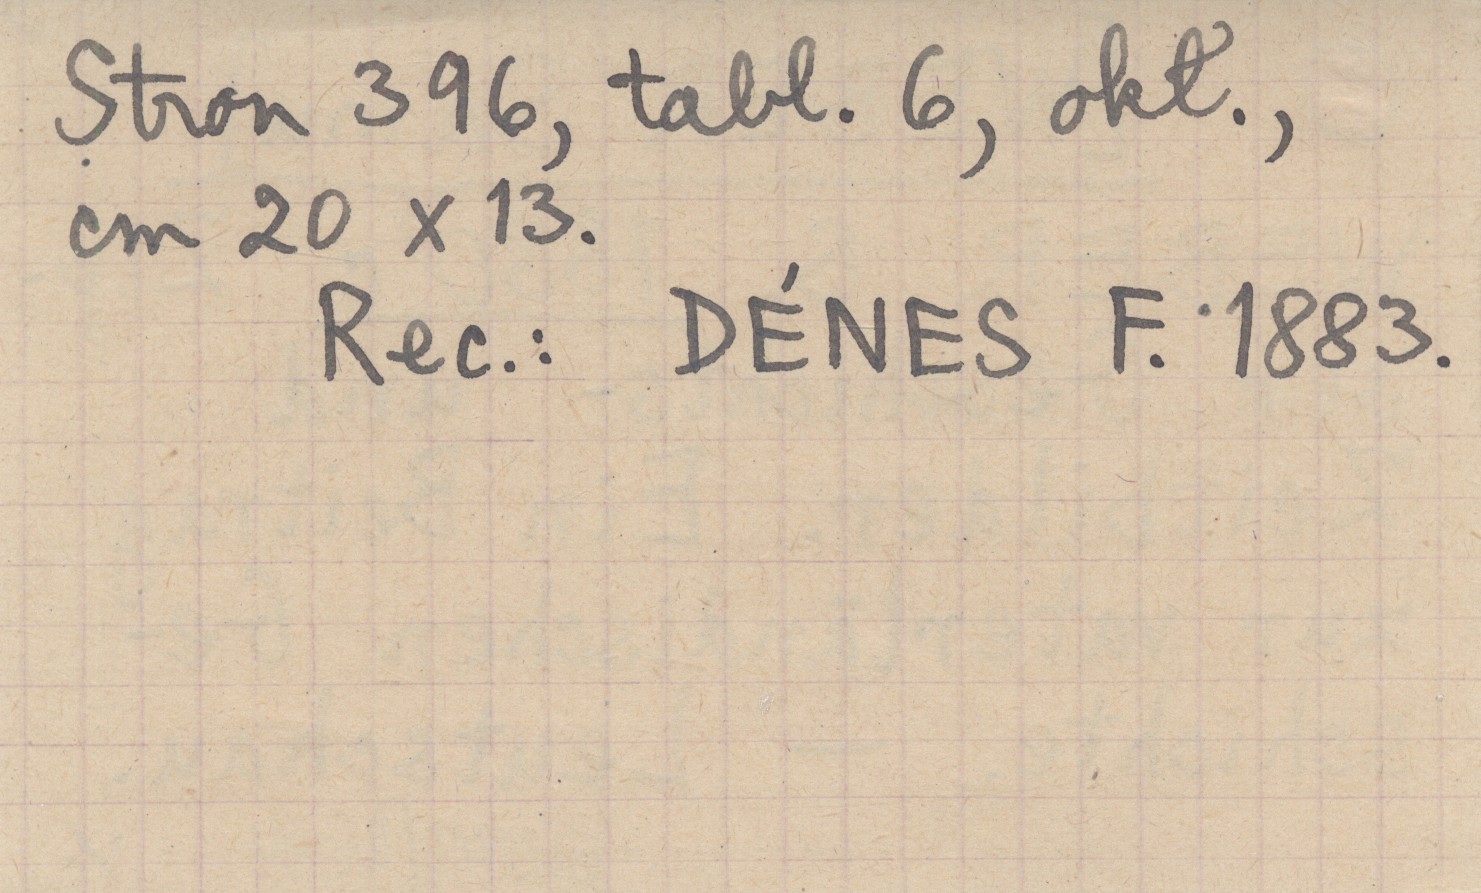 Stron 396, tabl. 6, okł.,
cm 20 x 13.
Rec.: DÉNES F. 1883.